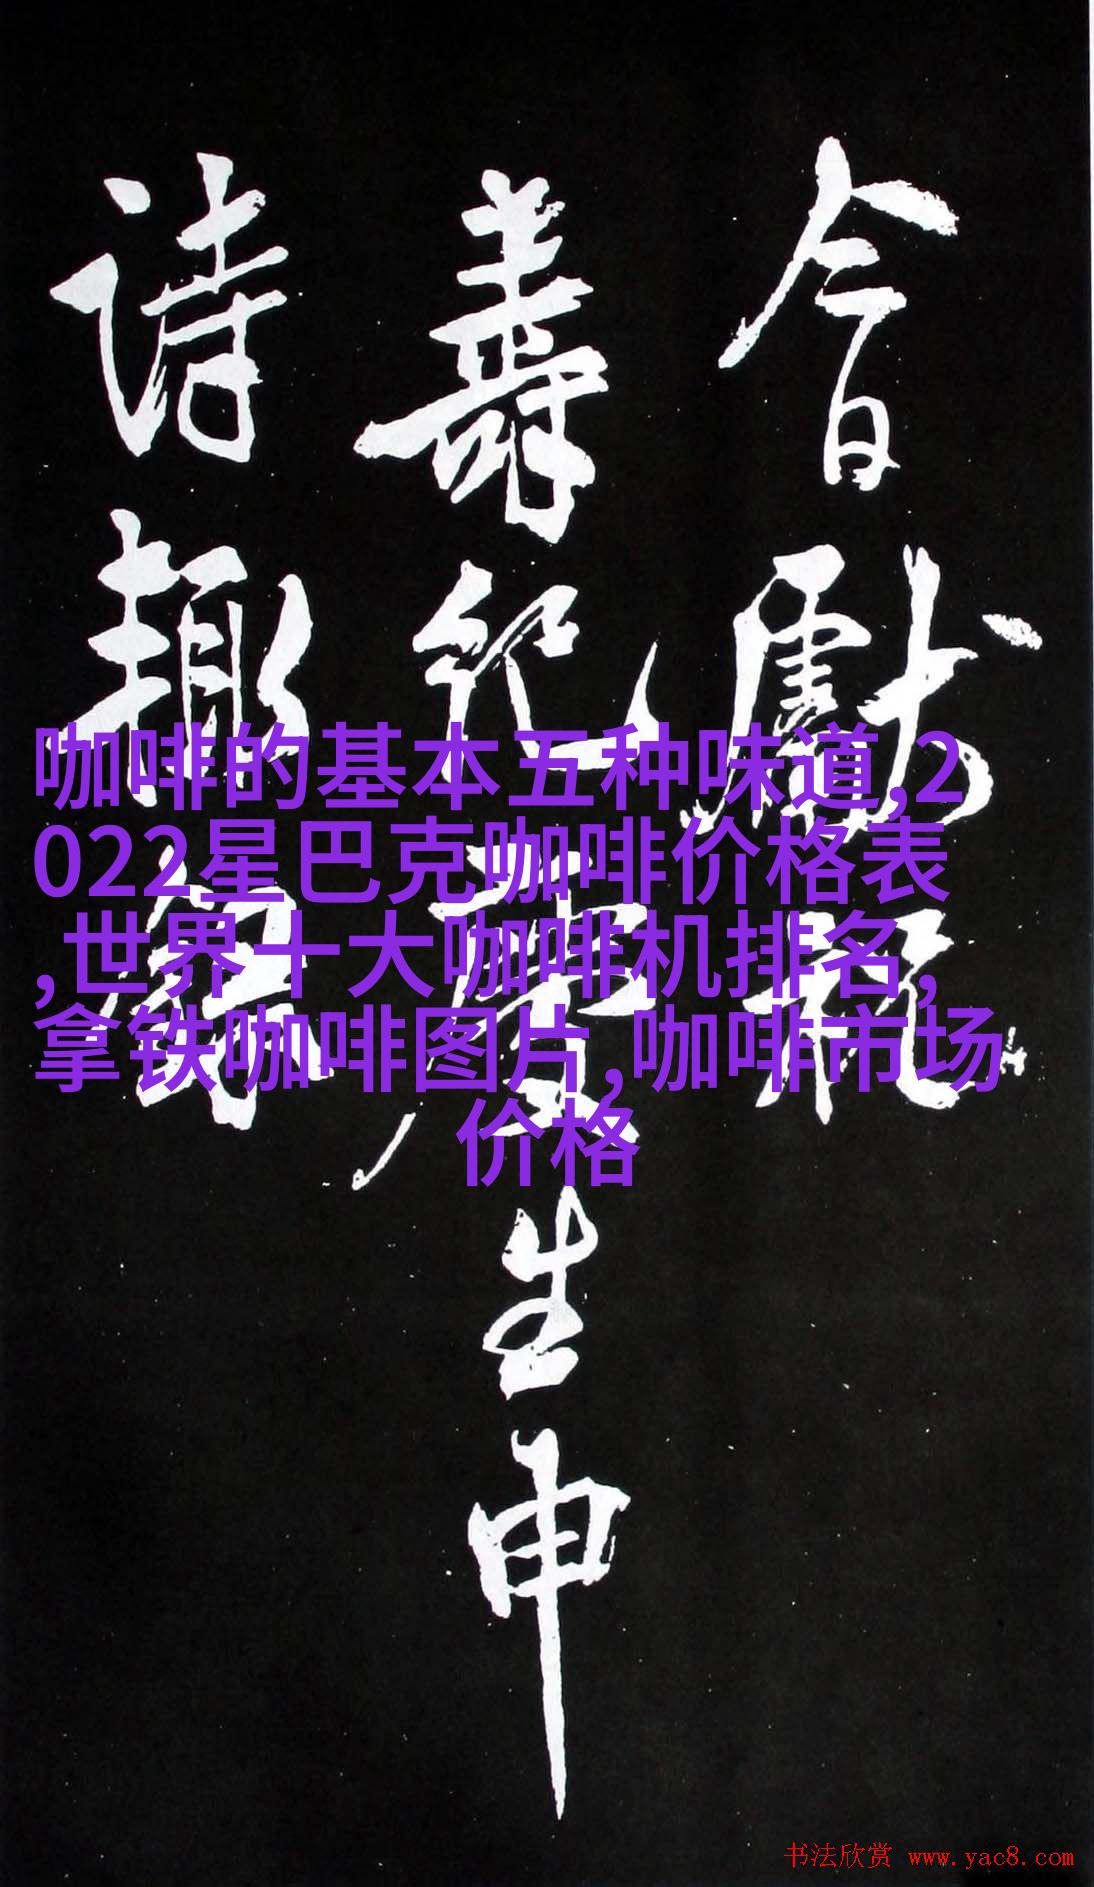 今日獻
壽
生申
詩趣
咖啡的基本五种味道,2
022星巴克咖啡价格表
,世界十大咖啡机排名,
拿铁咖啡图片,咖啡市场
价格
书法欣赏 www.yac8.com